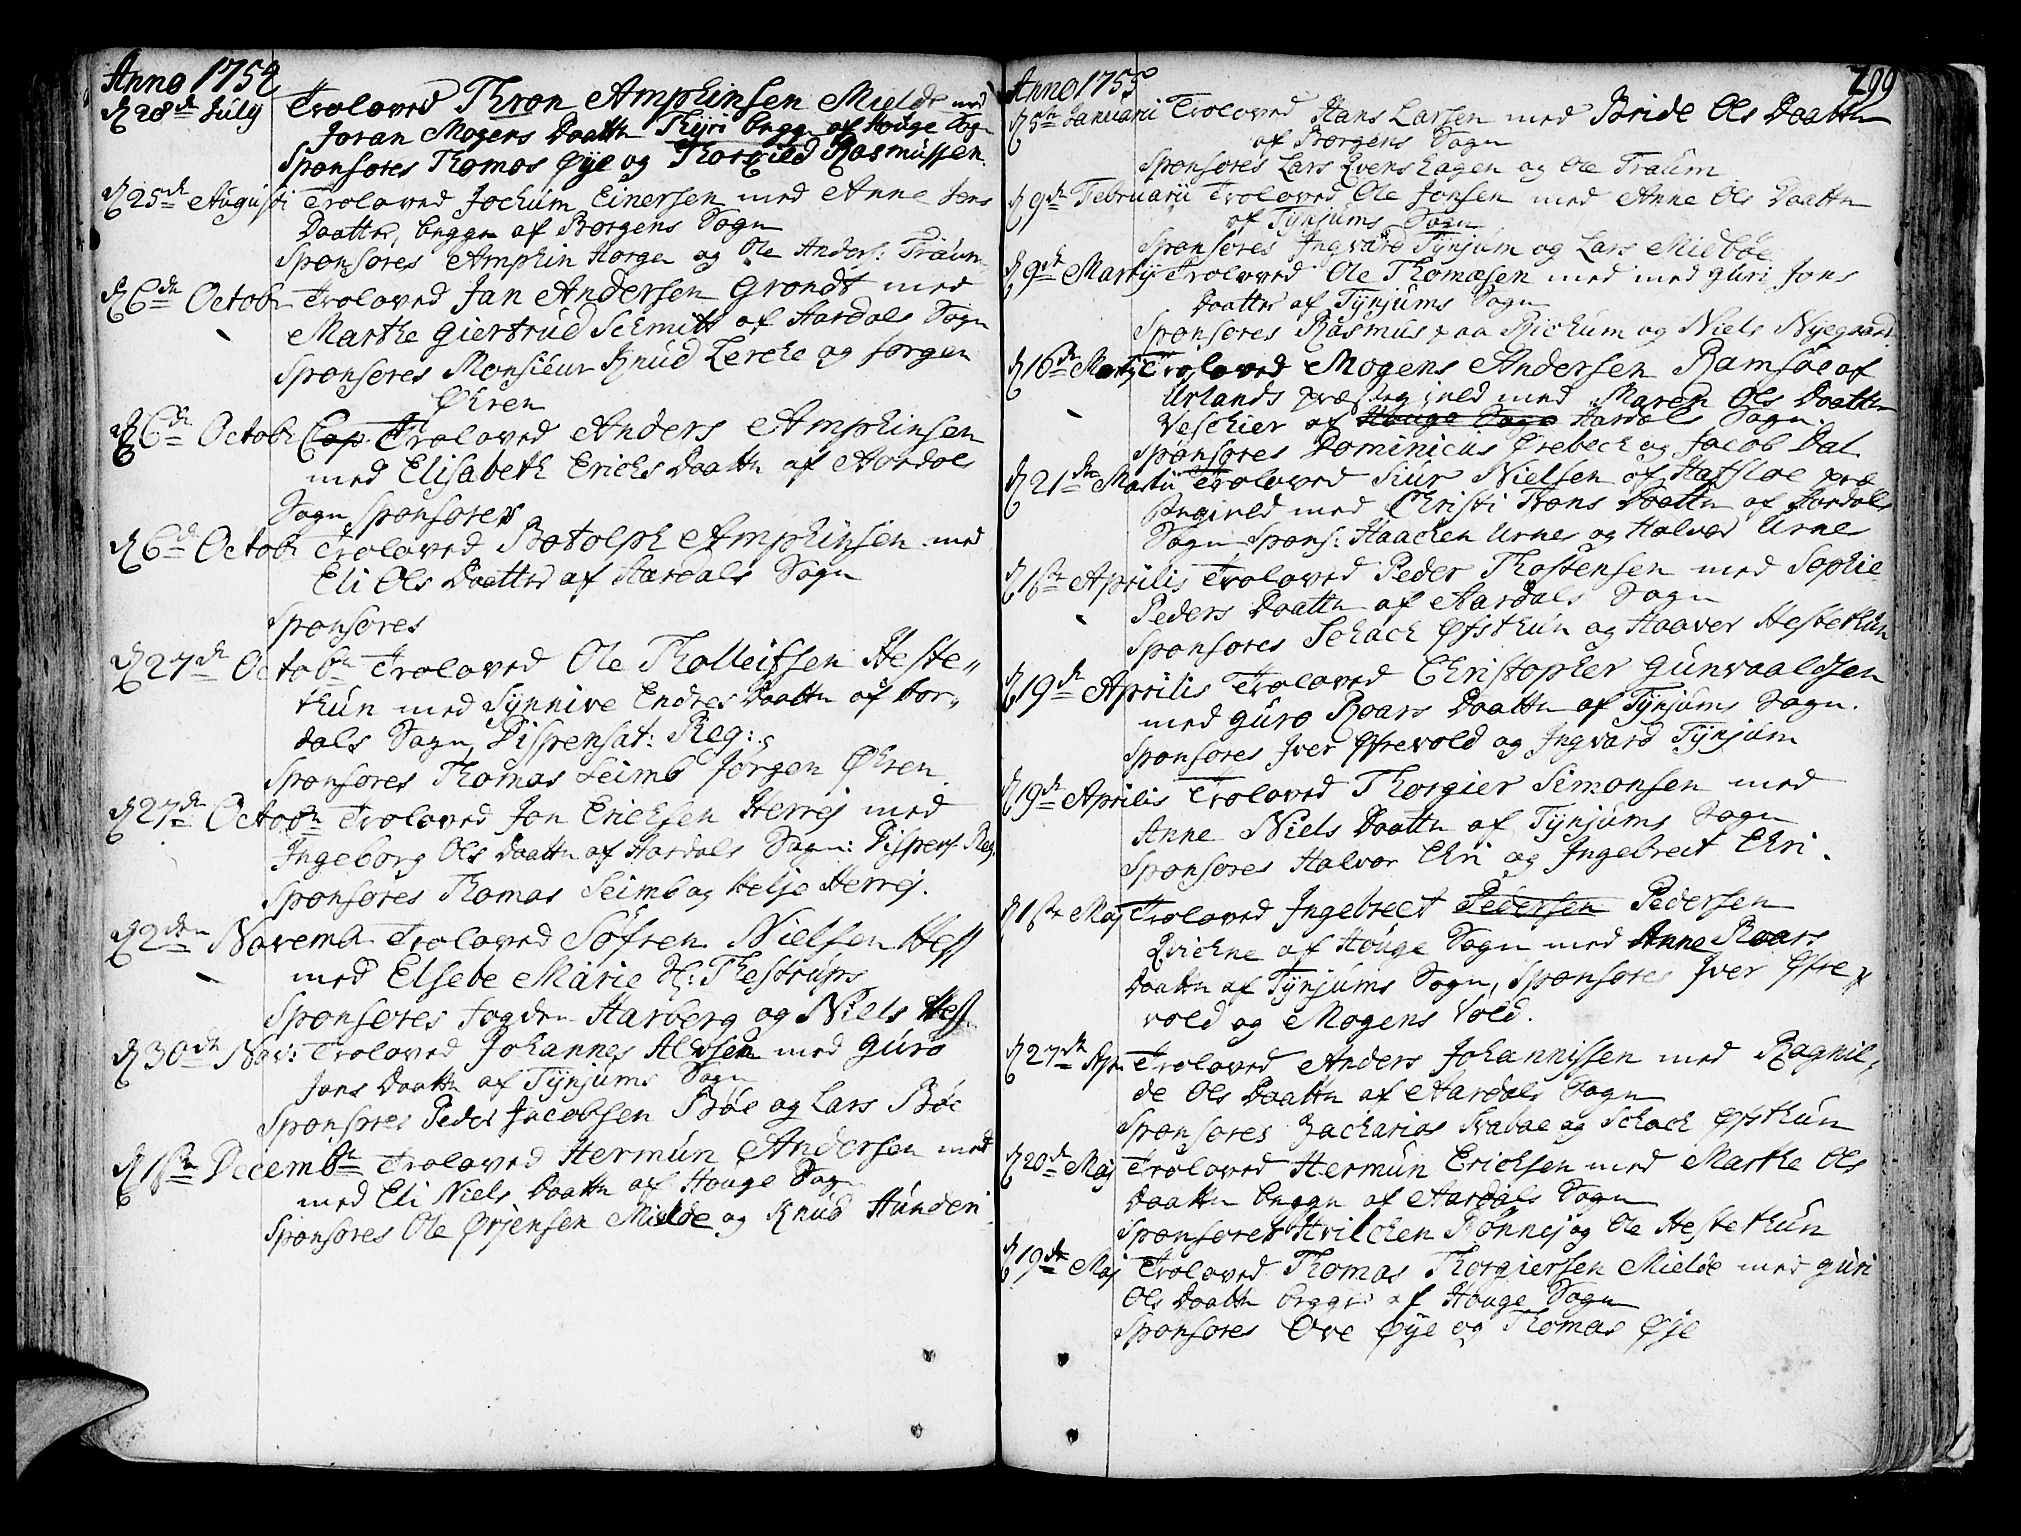 Anno 1754
d 28de July Troloved Thron Amphinsen Mielde med
Joran Mogens Daatter Thÿri begge af Houge Sogn
Sponsores Thomas Øÿe og Thorgild Rasmussen.
d 25de Augusti Troloved Jochum Einersen med Anne Jens
Daatter, begge af Borgens Sogn
Sponsores Amphin Horge og Ole Anders: Traum
d 6de Octobr Troloved Jan Andersen Grondt med
Marthe Giertrud Schmitt af Aardals Sogn
Sponsores Monsieur Knud Lerche og Jørgen
Øhren
d 6de Octobr Cop. Troloved Anders Amphinsen
med Elisabeth Erichs Daatter af Aardals
Sogn Sponsores
d 6de Octobr Troloved Botolph Amphinsen med
Eli Ols Daatter af Aardals Sogn
Sponsores
d 27de Octobr Troloved Ole Tholleifsen Heste-
thun med Synnive Endres Daatter af Aar-
dals Sogn, Dispensat: Reg:
Sponsores Thomas Seimb Jørgen Øhren.
d 27de Octobr Troloved Jon Erichsen Herrej med
Ingeborg Ols Daatter af Aardals Sogn: Dispens. Reg.
Sponsores Thomas Seimb og Helje Herrej.
d 2den Novembr Troloved Søfren Nielsen Hess
med Elsebe Marie H: Thestrups
Sponsores Fogden Harberg og Niels Hess
d 30de Nov: Troloved Johannes Alvsen med Guro
Jons Daatter af Tÿnjums Sogn
Sponsores Peder Jacobsen Bøe og Lars Bøe
d 1ste Decembr Troloved Hermun Andersen med
med Eli Niels Daatter af Houge Sogn
Sponsores Ole Ørjensen Mielde og Knud Hunderi
Anno 1755 299
d 5te Januarii Troloved Hans Larsen med Bride Ols Daatter
af Borgens Sogn
Sponsores Lars Qvenshagen og Ole Traum
d 9de Februarii Troloved Ole Jonsen med Anne Ols Daatter
af Tÿnjums Sogn
Sponsores Ingvard Tÿnjum og Lars Midbøe
d 9de Martij Troloved Ole Thomæsen med med Guri Jons
Daatter af Tÿnjums Sogn
Sponsores Rasmus paa Richum og Niels Nÿegaard
d 16de Martij Troloved Mogens Andersen Ramsøe af
Urlands præstegield med Maren Ols Daatter
Veschier af Houge Sogn Aardals Sogn.
Sponsores Dominicus Ørebech og Jacob Dal
d 21de Martii Troloved Siur Nielsen af Hafsloe præ
stegield med Christi Trons Daatter af Aardals
Sogn Spons: Haachen Urnes og Halvor Urnes
d 1ste Aprilis Troloved Peder Thostensen med Sophie
Peders Daatter af Aardals Sogn
Sponsores Schach Øfsthun og Haaver Hestethun
d 19de Aprilis Troloved Christopher Gunvaaldsen
med Guro Roars Daatter af Tÿnjums Sogn.
Sponsores Iver Øfrevold og Ingvard Tÿnjum
d 19de Aprilis Troloved Thorgier Simonsen med
Anne Niels Daatter af Tÿnjums Sogn
Sponsores Halvor Ehri og Ingebrect Ehri.
d 1ste Maj Troloved Ingebrect Pedersen Pedersen
Qvichne af Houge Sogn med Anne Roars
Daatter af Tÿnjums Sogn, Sponsores Iver Øfre-
vold og Mogens Vold.
d 27de Apr. Troloved Anders Johannissen med Ragnil-
de Ols Daatter af Aardals Sogn
Sponsores Zacharias Svabae og Schach Øfsthun
d 20de Maj Troloved Hermun Erichsen med Marthe Ols
Daatter begge af Aardals Sogn
Sponsores Hvilchen Rønnej og Ole Hestethun
d 19de Maj Troloved Thomas Thorgiersen Mielde med Guri
Ols Daatter begge af Houge Sogn
Sponsores Ove Øÿe og Thomas Øje